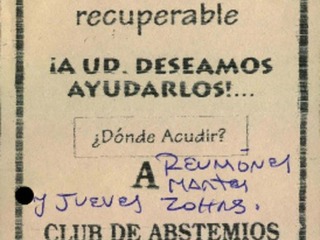 recuperable
¡A UD. DESEAMOS
AYUDARLOS!...
¿Dónde Acudir?
A REUNIÓNES
MARTES
Y JUEVES 20HRS.
CLUB DE ABSTEMIOS